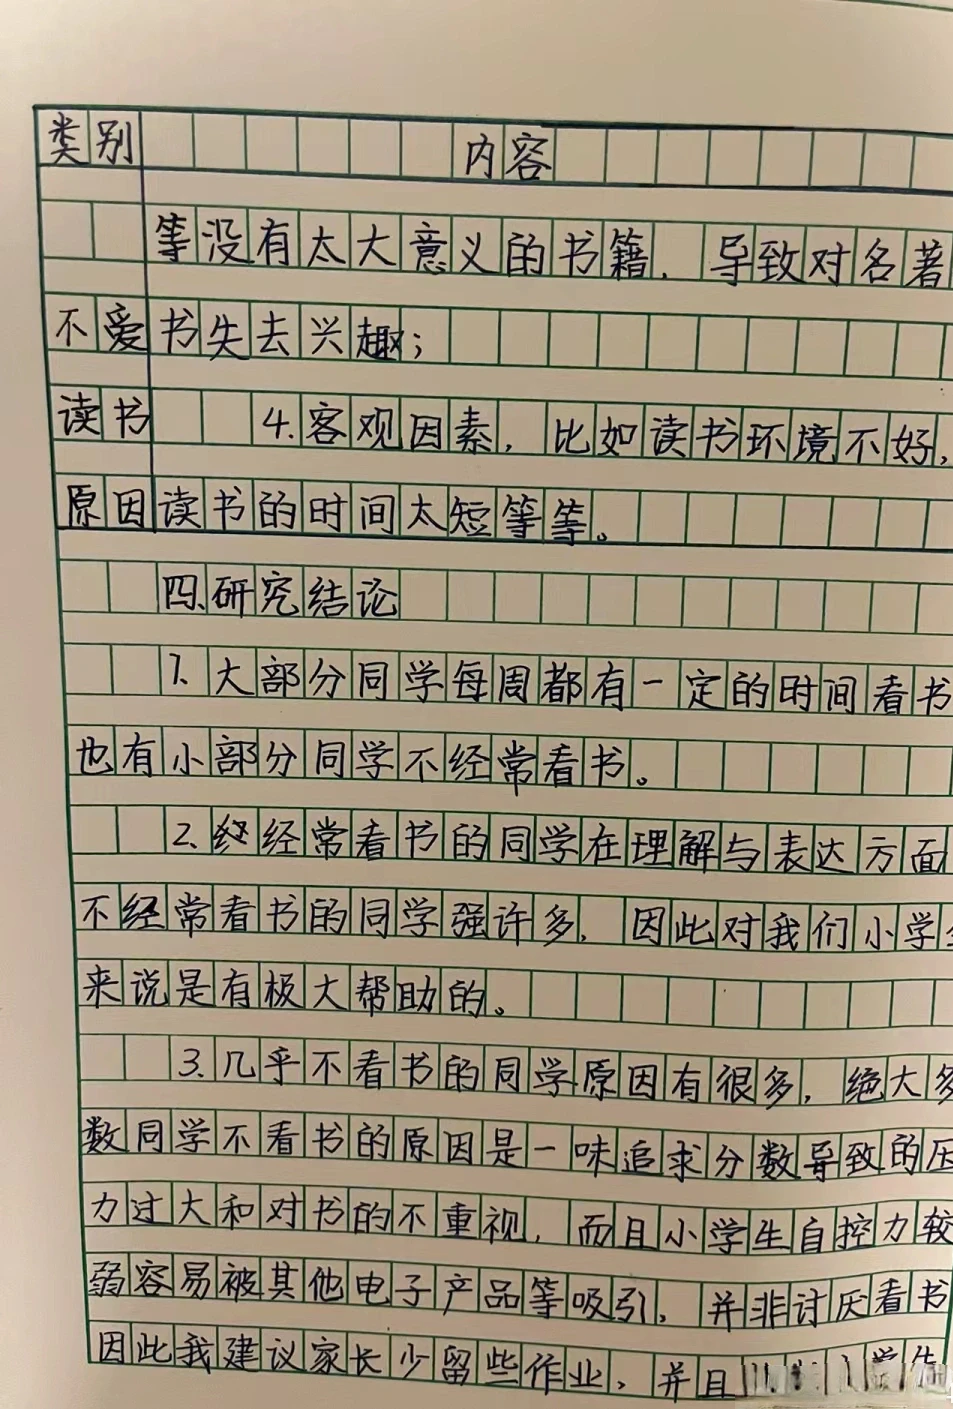 类别 内容
等没有太大意义的书籍，导致对名著
不爱 书失去兴趣；
读书 4.客观因素，比如读书环境不好，
原因 读书的时间太短等等。
四、研究结论
1.大部分同学每周都有一定的时间看书
也有小部分同学不经常看书。
2.经常看书的同学在理解与表达方面
不经常看书的同学强许多，因此对我们小学
来说是有极大帮助的。
3.几乎不看书的同学原因有很多，绝大多
数同学不看书的原因是一味追求分数导致的压
力过大和对书的不重视，而且小学生自控力较
弱容易被其他电子产品等吸引，并非讨厌看书
因此我建议家长少留些作业，并且